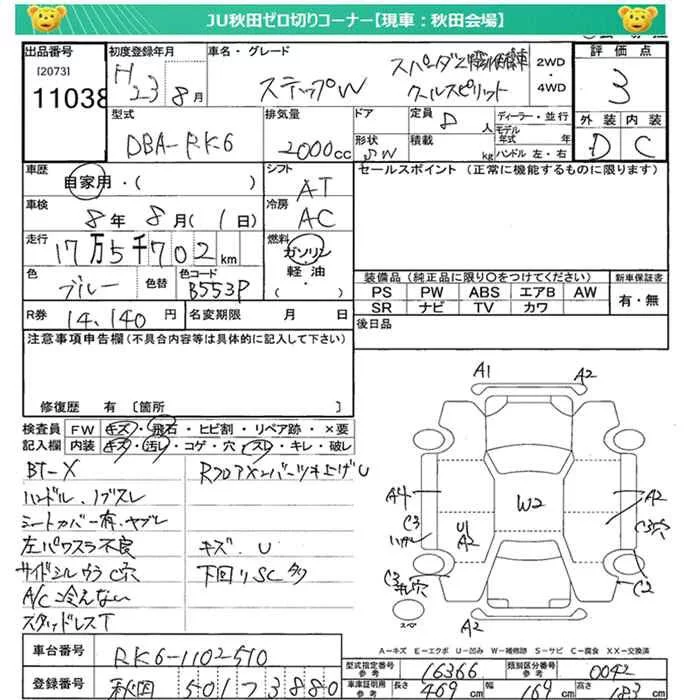 JU秋田ゼロ切りコーナー【現車：秋田会場】
出品番号 初度登録年月 車名・グレード 2WD・4WD 評価点
[2073] 11038 H23 8月 ステップW スパーダZ クールスピリット 3
型式 排気量 ドア 定員 8人 ディーラー・並行 外装 内装
DBA-RK6 2000cc 形状 SW 積載 kg モデル年式 年 ハンドル 左・右 D C
車歴 自家用・( ) シフト AT セールスポイント (正常に機能するものに限ります)
車検 8年 8月 (1日) 冷房 AC
走行 17万5千702km 燃料 ガソリン・軽油・( )
色 ブルー 色替 色コード B553P
装備品 (純正品に限り○をつけてください) 新車保証書
PS PW ABS エアB AW 有・無
SR ナビ TV カワ
R券 14,140円 名変期限 月 日 後日品
注意事項申告欄 (不具合内容等は具体的に記入して下さい)
修復歴 有 [箇所
検査員記入欄 FW キズ・飛石・ヒビ割・リペア跡・×要
内装 キズ・汚レ・コゲ・穴・スレ・キレ・破レ
BT-X
ハンドル、ノブスレ
シートカバー有、ヤブレ
左パワスラ不良
サイドシルウラC穴
A/C冷えない
スタッドレスT
RフロアXンバーツキ上げU
キズ、U
下回りSC多
A1 A2
A4 W2 A2
C3 U1 A2 C3穴
C3 穴 C2
スペ A2
A-キズ E-エクボ U-凹み W-補修跡 S-サビ C-腐食 XX-交換済
車台番号 RK6-1102510
登録番号 秋田 501 7 3880
型式指定番号 参考 16366 類別区分番号 参考 0042
車庫証明用 参考 長さ 469cm 幅 169cm 高さ 183cm